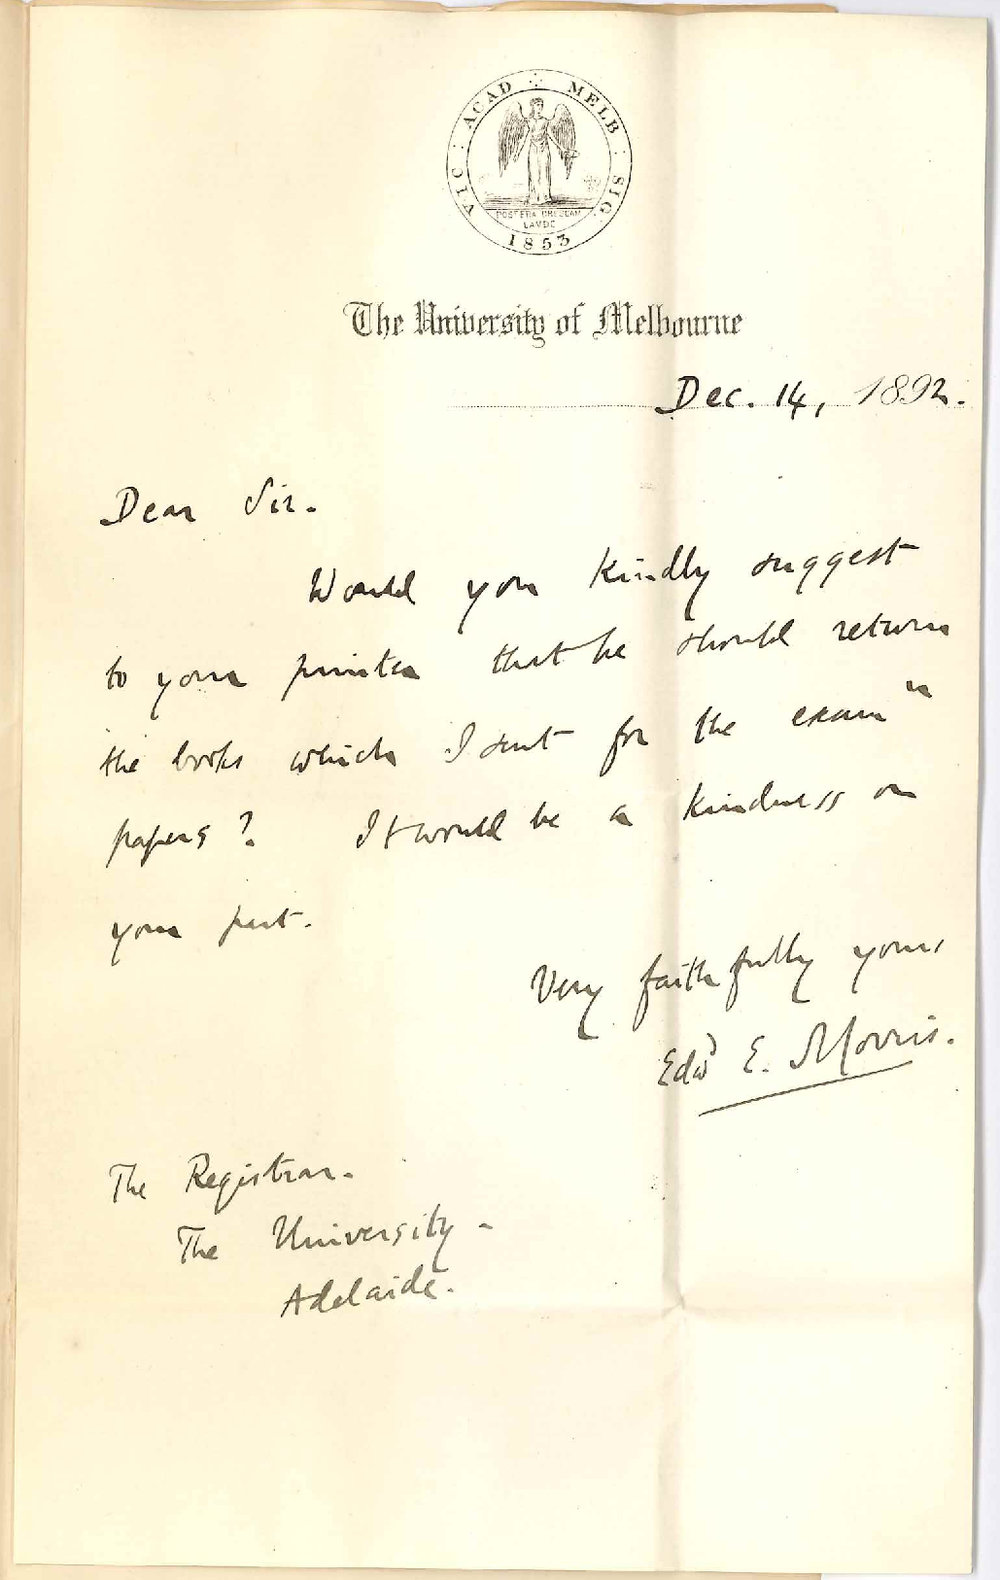 VIC : ACAD ∴ MELB : SIG.
POSTERA CRESCAM
LAVDE
1853
The University of Melbourne
Dec. 14, 1892.
Dear Sir.
Would you kindly suggest
to your printer that he should return
the books which I sent for the examn
papers? It would be a kindness on
your part.
Very faithfully yours
Edwd E. Morris.
The Registrar.
The University -
Adelaide.